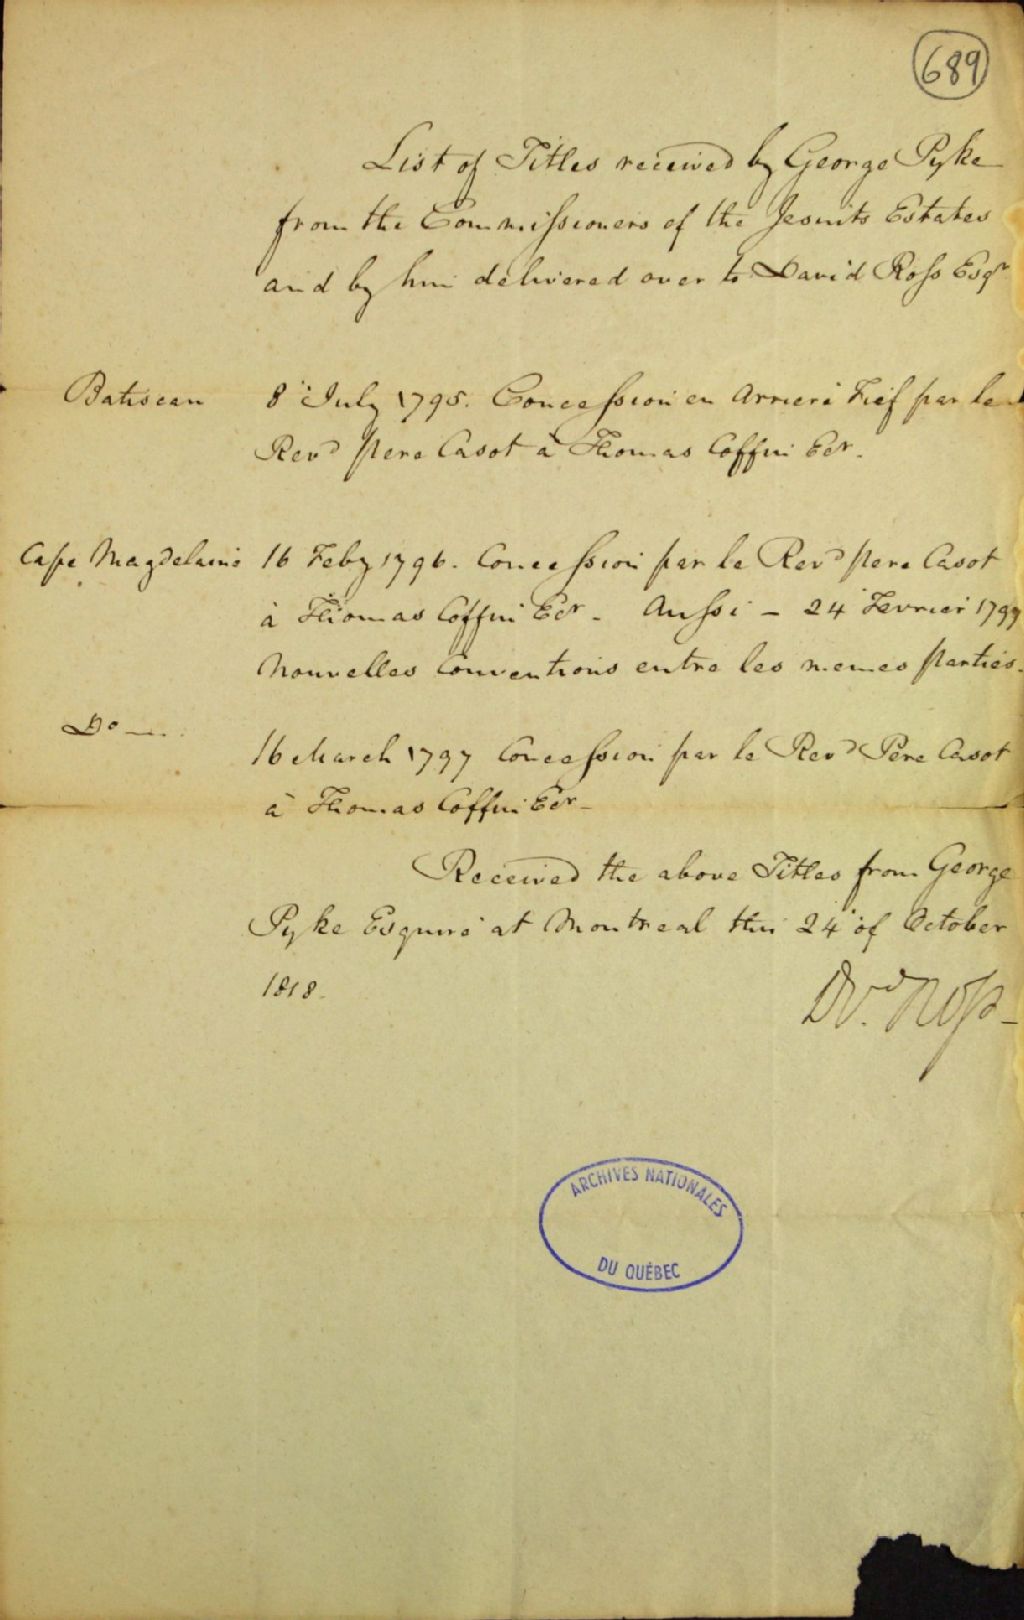 689
List of Titles received by George Pyke
from the Commissioners of the Jesuits Estates
and by him delivered over to David Ross Esqr
Batiscan 8 July 1795. Concession en Arriere Fief par le
Revd pere Casot à Thomas Coffin Ecr.
Cape Magdelaine 16 Feby 1796. Concession par le Revd pere Casot
à Thomas Coffin Ecr. Aussi - 24 Fevrier 1797
Nouvelles Conventions entre les memes parties.
Do 16 March 1797 Concession par le Revd Père Casot
à Thomas Coffin Ecr -
Received the above Titles from George
Pyke Esquire at Montreal this 24 of October
1818.
Dvd. Ross -
ARCHIVES NATIONALES
DU QUÉBEC